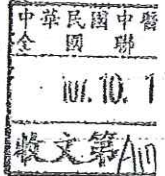 中華民國中醫
全國聯
107.10.1
收文第